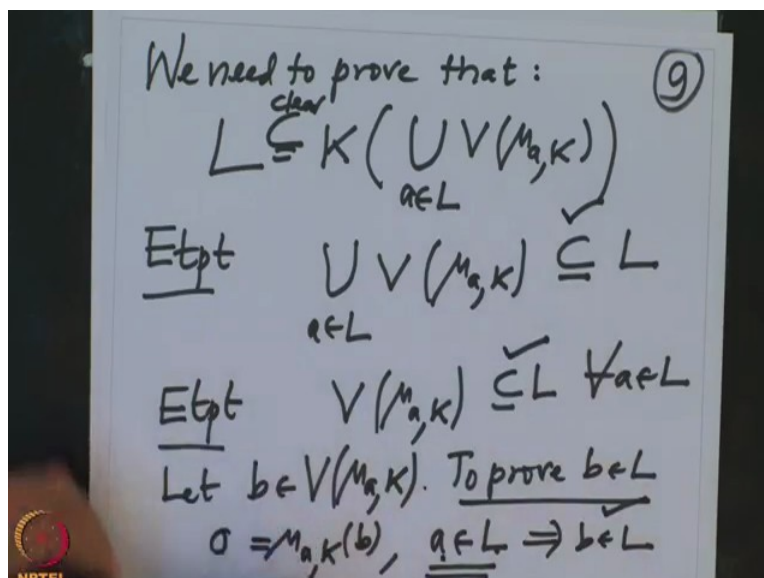 We need to prove that : ⑨
clear
L ⊆ K ( ∪ V(μ_{a,K}) )
a∈L
Etpt ∪ V(μ_{a,K}) ⊆ L
a∈L
Etpt V(μ_{a,K}) ⊆ L ∀a∈L
Let b∈V(μ_{a,K}). To prove b∈L
0 = μ_{a,K}(b), a∈L ⇒ b∈L
NPTEL